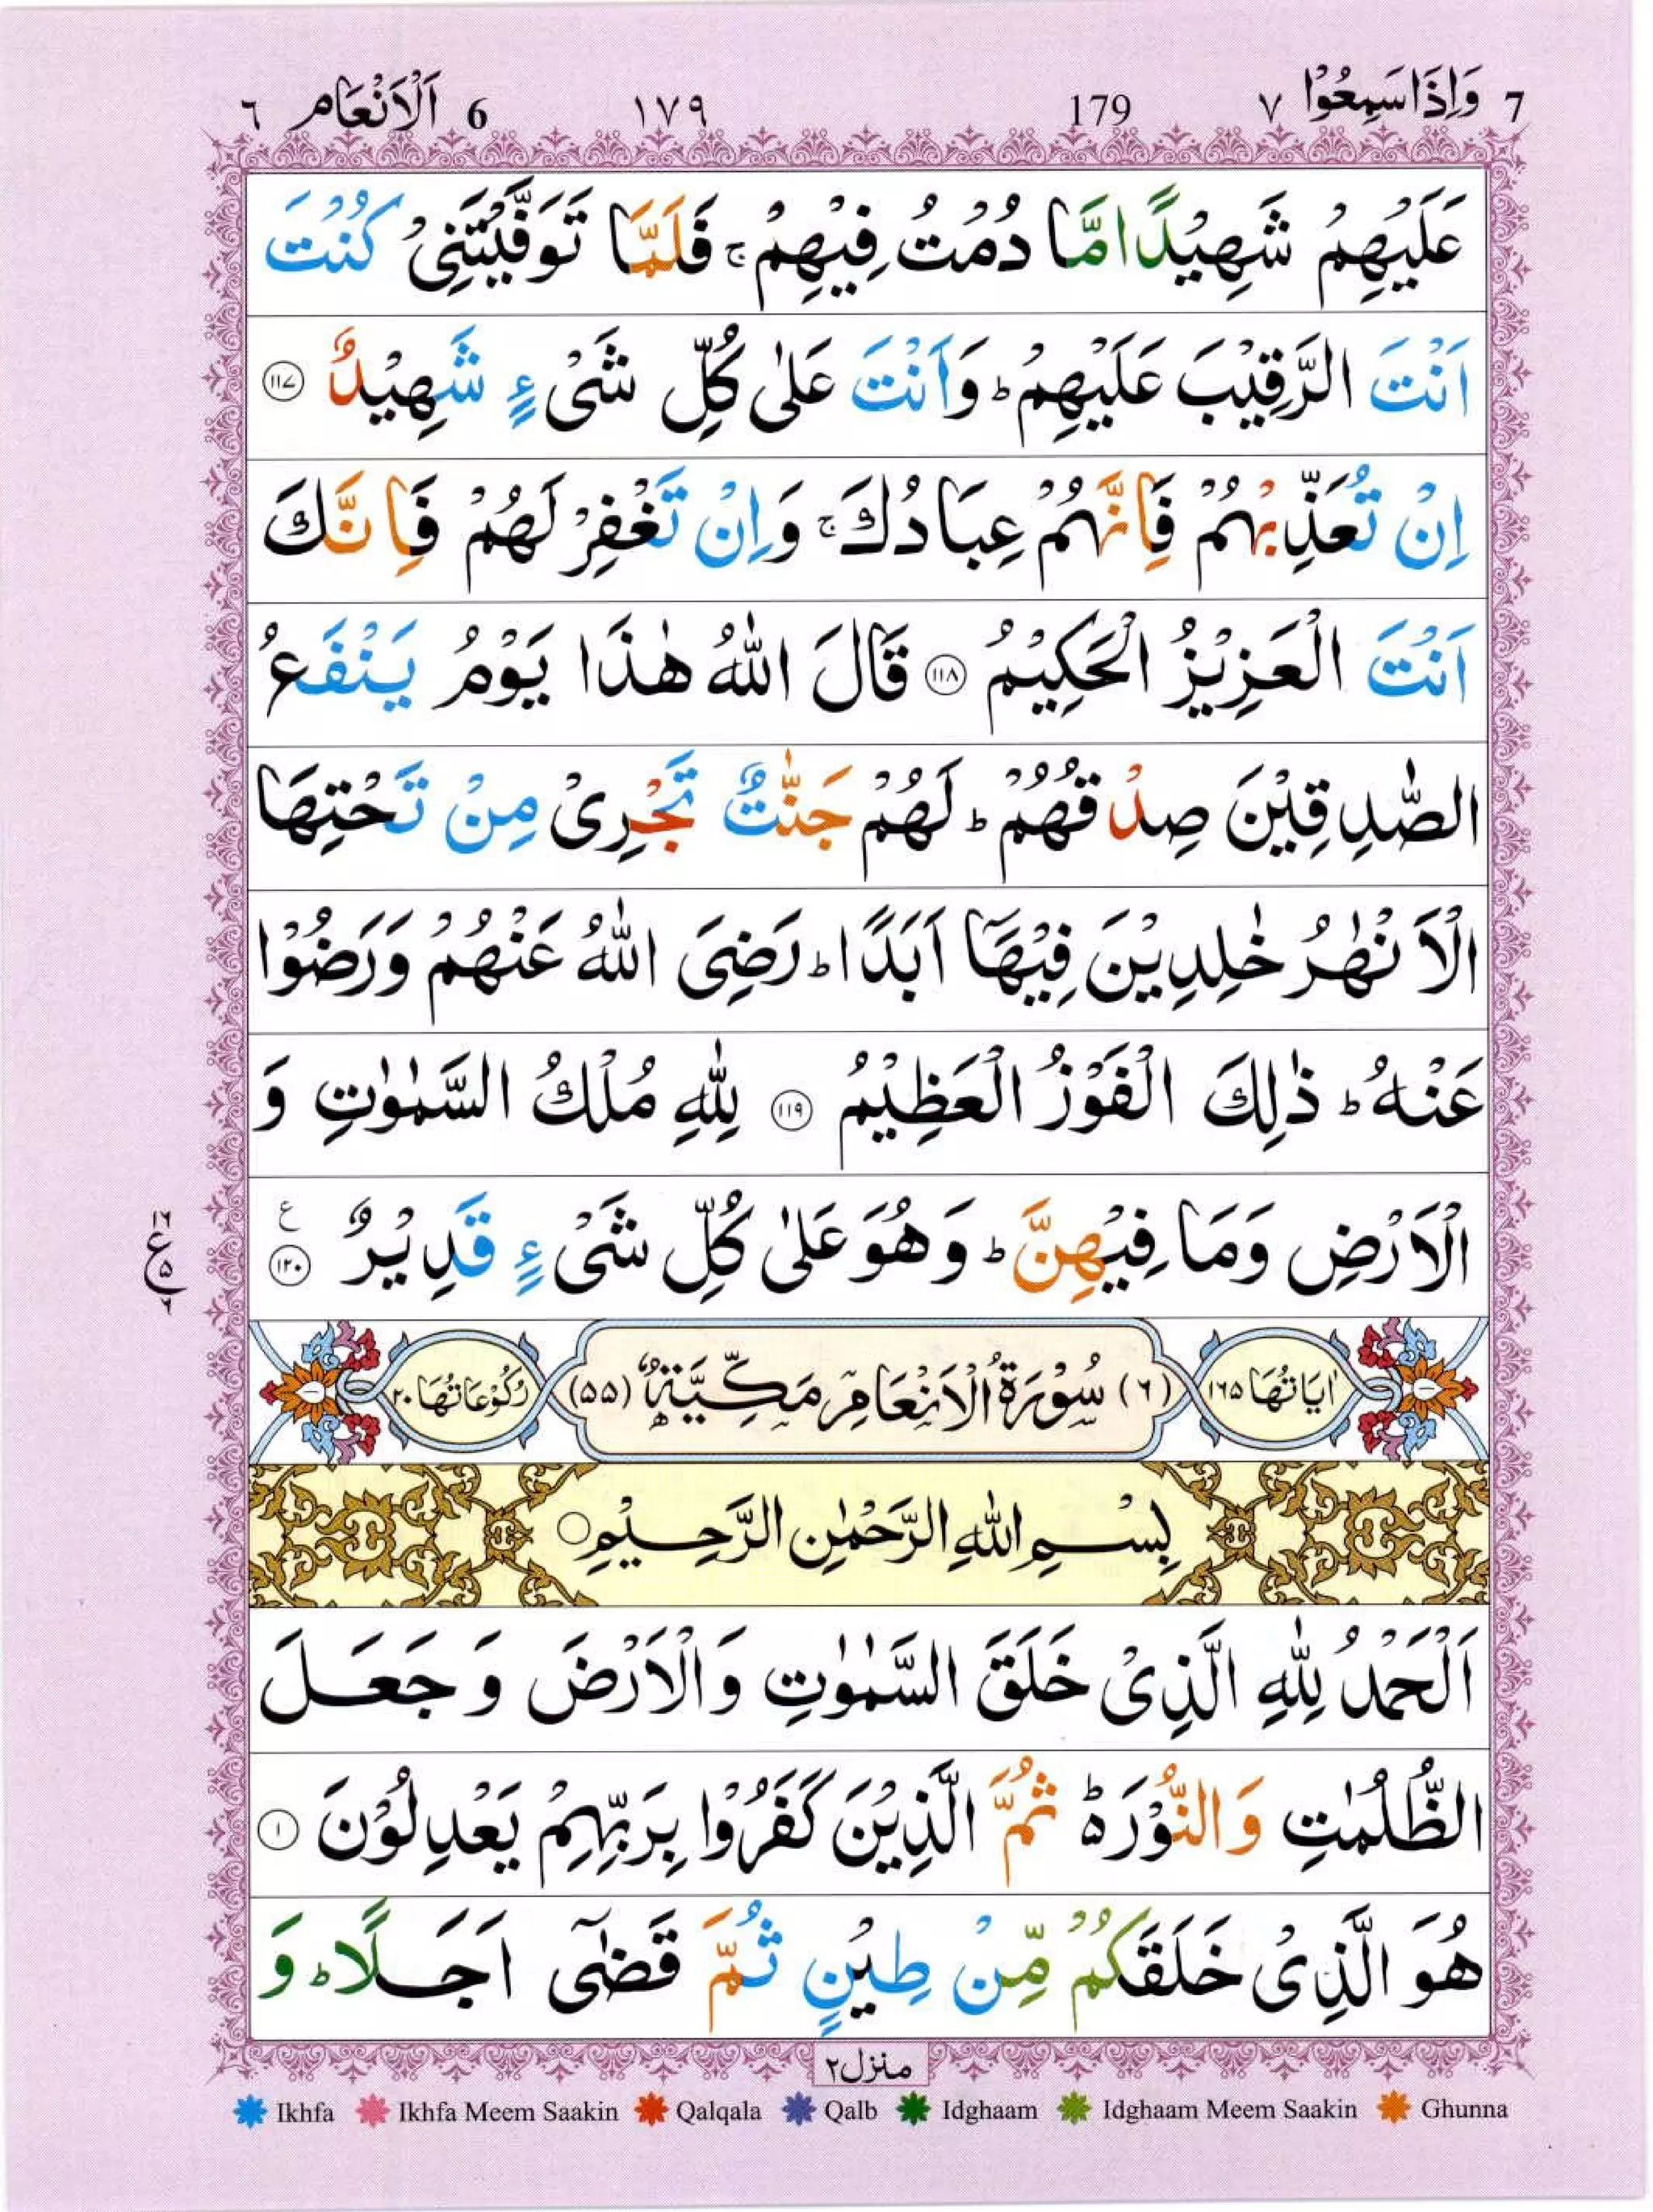 7 وَاِذَا سَمِعُوْا ٧ 179 ١٧٩ 6 اَلْاَنْعَام ٦
عَلَيْهِمْ شَهِيْدًا مَّا دُمْتُ فِيْهِمْ ۚ فَلَمَّا تَوَفَّيْتَنِىْ كُنْتَ
اَنْتَ الرَّقِيْبَ عَلَيْهِمْ ؕ وَاَنْتَ عَلٰى كُلِّ شَىْءٍ شَهِيْدٌ ١١٧
اِنْ تُعَذِّبْهُمْ فَاِنَّهُمْ عِبَادُكَ ۚ وَاِنْ تَغْفِرْ لَهُمْ فَاِنَّكَ
اَنْتَ الْعَزِيْزُ الْحَكِيْمُ ١١٨ قَالَ اللّٰهُ هٰذَا يَوْمُ يَنْفَعُ
الصّٰدِقِيْنَ صِدْقُهُمْ ؕ لَهُمْ جَنّٰتٌ تَجْرِىْ مِنْ تَحْتِهَا
الْاَنْهٰرُ خٰلِدِيْنَ فِيْهَاۤ اَبَدًا ؕ رَضِىَ اللّٰهُ عَنْهُمْ وَرَضُوْا
عَنْهُ ؕ ذٰلِكَ الْفَوْزُ الْعَظِيْمُ ١١٩ لِلّٰهِ مُلْكُ السَّمٰوٰتِ وَ
الْاَرْضِ وَمَا فِيْهِنَّ ؕ وَهُوَ عَلٰى كُلِّ شَىْءٍ قَدِيْرٌ ١٢٠ ع
١٦
ع
٥
٦
اٰيَاتُهَا ١٦٥ (٦) سُوْرَةُ الْاَنْعَامِ مَكِّيَّةٌ (٥٥) رُكُوْعَاتُهَا ٢٠
بِسْمِ اللّٰهِ الرَّحْمٰنِ الرَّحِيْمِ
اَلْحَمْدُ لِلّٰهِ الَّذِىْ خَلَقَ السَّمٰوٰتِ وَالْاَرْضَ وَجَعَلَ
الظُّلُمٰتِ وَالنُّوْرَ ؕ۬ ثُمَّ الَّذِيْنَ كَفَرُوْا بِرَبِّهِمْ يَعْدِلُوْنَ ١
هُوَ الَّذِىْ خَلَقَكُمْ مِّنْ طِيْنٍ ثُمَّ قَضٰۤى اَجَلًا ؕ وَ
منزل ٢
Ikhfa Ikhfa Meem Saakin Qalqala Qalb Idghaam Idghaam Meem Saakin Ghunna